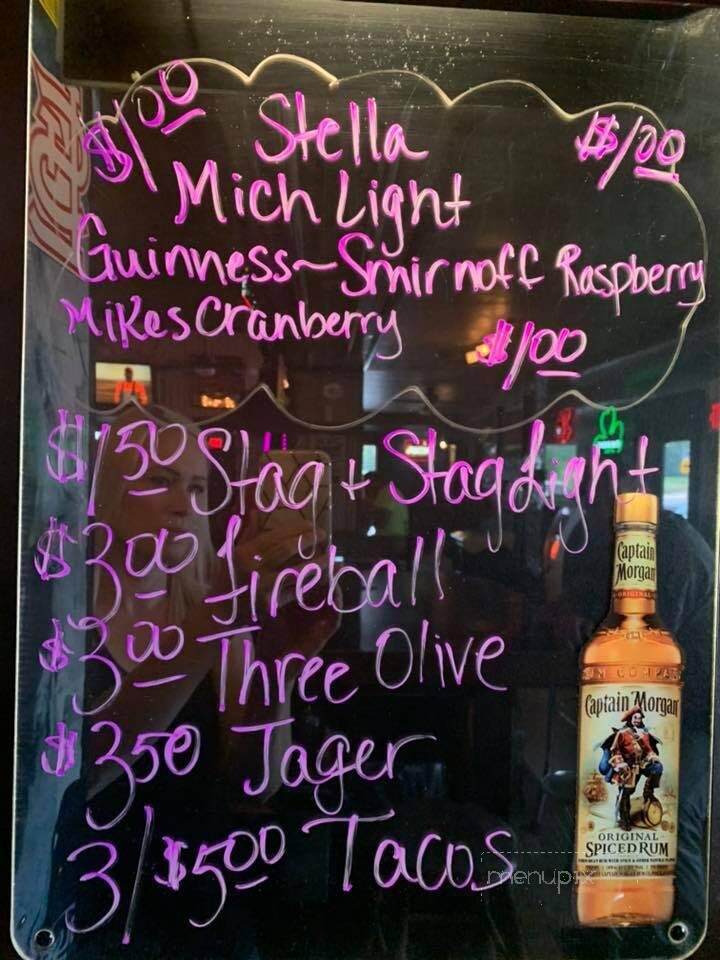 $1.00 Stella $1.00
Mich Light
Guinness~Smirnoff Raspberry
Mikes Cranberry $1.00
$1.50 Stag + Stag Light
$3.00 fireball
$3.00 Three Olive
$3.50 Jager
3/$5.00 Tacos
Captain
Morgan
ORIGINAL
Captain Morgan
ORIGINAL
SPICED RUM
menupix